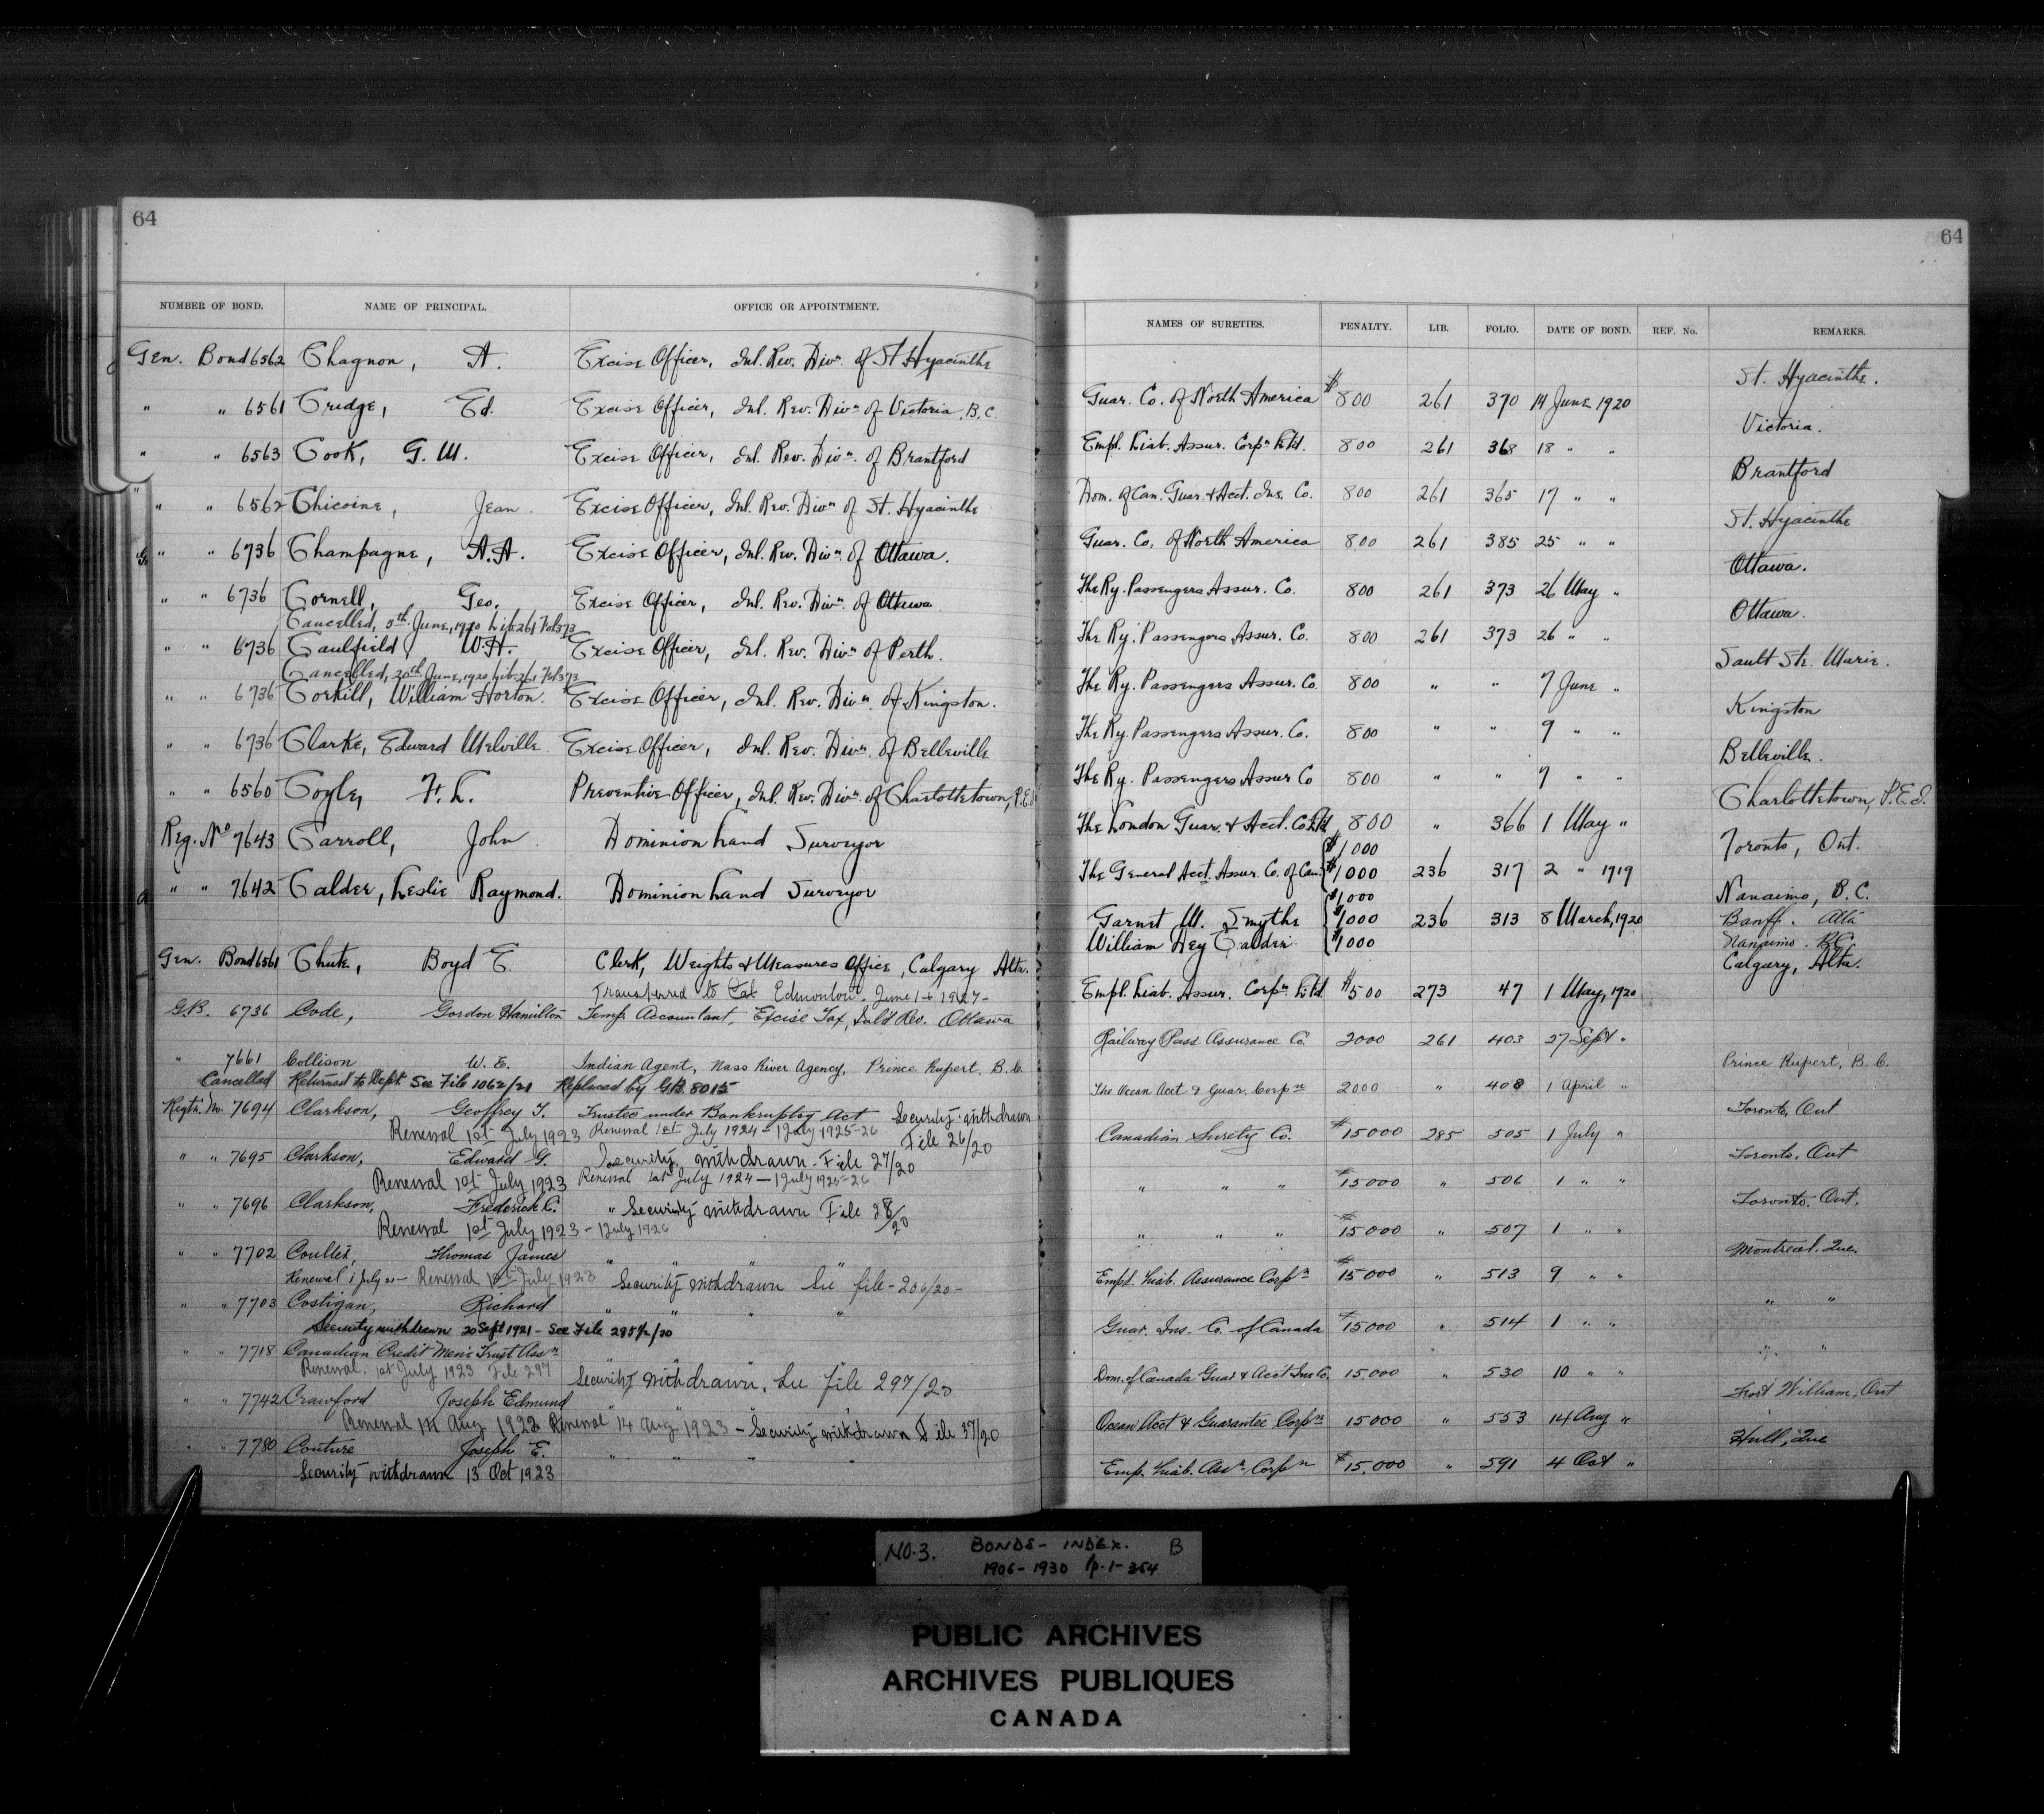 64
NUMBER OF BOND. NAME OF PRINCIPAL. OFFICE OR APPOINTMENT.
Gen. Bond 6562 Chagnon, A. Excise Officer, Inl. Rev. Divn. of St Hyacinthe
" " 6561 Cridge, Ed. Excise Officer, Inl. Rev. Divn of Victoria, B.C.
" " 6563 Cook, G. W. Excise Officer, Inl. Rev. Divn. of Brantford
" " 6562 Chicoine, Jean Excise Officer, Inl. Rev. Divn of St. Hyacinthe
" " 6736 Champagne, A.A. Excise Officer, Inl. Rev. Divn of Ottawa.
" " 6736 Cornell, Geo. Excise Officer, Inl. Rev. Divn. of Ottawa
Cancelled, 5th June, 1920 Lib 261 Fol 373
" " 6736 Caulfield, W.H. Excise Officer, Inl. Rev. Divn of Perth.
Cancelled, 20th June, 1920 Lib 261 Fol 373
" " 6736 Corkill, William Horton. Excise Officer, Inl. Rev. Divn. of Kingston.
" " 6736 Clarke, Edward Melville Excise Officer, Inl. Rev. Divn. of Belleville
" " 6560 Coyle, F. L. Preventive Officer, Inl. Rev. Divn of Charlottetown, P.E.I
Reg. No 7643 Carroll, John Dominion Land Surveyor
" " 7642 Calder, Leslie Raymond. Dominion Land Surveyor
Gen. Bond 6561 Chute, Boyd E. Clerk, Weights & Measures Office, Calgary Alta.
Transferred to Cal Edmonton June 1st 1927-
G.B. 6736 Code, Gordon Hamilton Temp. Accountant, Excise Tax, Inl'd Rev. Ottawa
" 7661 Collison W. E. Indian Agent, Nass River Agency, Prince Rupert, B.C.
Cancelled Returned to Dept. See File 1062/21 Replaced by G.B. 8015
Regtn. No. 7694 Clarkson, Geoffrey T. Trustee under Bankruptcy Act Security withdrawn
Renewal 1st July 1923 Renewal 1st July 1924 - 1 July 1925-26 File 26/20
" " 7695 Clarkson, Edward G. Security withdrawn - File 27/20
Renewal 1st July 1923 Renewal 1st July 1924 - 1 July 1925-26
" " 7696 Clarkson, Frederick C. " Security withdrawn File 28/20
Renewal 1st July 1923 - 1 July 1926
" " 7702 Coulter, Thomas James " " " "
Renewal 1 July 21 - Renewal 1st July 1923 Security withdrawn See file - 206/20 -
" " 7703 Costigan, Richard " " " "
Security withdrawn 20 Sept 1921 - See File 285 1/2/20
" " 7718 Canadian Credit Men's Trust Assn " " "
Renewal. 1st July 1923 File 297 Security withdrawn, See file 297/20
" " 7742 Crawford Joseph Edmund " " " "
Renewal 14 Aug 1922 Renewal 14 Aug 1923 - Security withdrawn File 37/20
" " 7780 Couture Joseph E. " " " "
Security withdrawn 13 Oct 1923
64
NAMES OF SURETIES. PENALTY. LIB. FOLIO. DATE OF BOND. REF. No. REMARKS.
St. Hyacinthe.
Guar. Co. of North America $800 261 370 14 June 1920
Victoria.
Empl. Liab. Assur. Corpn Ltd. 800 261 368 18 " "
Brantford
Dom. of Can. Guar. & Acct. Ins. Co. 800 261 365 17 " "
St. Hyacinthe
Guar. Co. of North America 800 261 385 25 " "
Ottawa.
The Ry. Passengers Assur. Co. 800 261 373 26 May "
Ottawa.
The Ry. Passengers Assur. Co. 800 261 373 26 " "
Sault Ste. Marie.
The Ry. Passengers Assur. Co. 800 " " 7 June "
Kingston
The Ry. Passengers Assur. Co. 800 " " 9 " "
Belleville.
The Ry. Passengers Assur Co 800 " " 7 " "
Charlottetown, P.E.I.
The London Guar. & Acct. Co. Ltd 800 " 366 1 May "
Toronto, Ont.
$1000
The General Acct. Assur. Co. of Can. $1000 236 317 2 " 1919
Nanaimo, B.C.
$1000
Garnet M. Smythe $1000 236 313 8 March, 1920 Banff. Alta
William Hey Calder $1000 Nanaimo. BC
Calgary, Alta.
Empl. Liab. Assur. Corpn Ltd $500 273 47 1 May, 1920
Railway Pass Assurance Co. 2000 261 403 27 Sept "
Prince Rupert, B.C.
The Ocean Acct & Guar. Corpn 2000 " 408 1 April "
Toronto, Ont
Canadian Surety Co. $15000 285 505 1 July "
Toronto, Ont
" " " $15000 " 506 1 " "
Toronto, Ont.
" " " $15000 " 507 1 " "
Montreal. Que.
Empl. Liab. Assurance Corpn $15000 " 513 9 " "
" "
Guar. Ins. Co. of Canada $15000 " 514 1 " "
" "
Dom. of Canada Guar & Acc't Ins Co. 15,000 " 530 10 " "
Fort William, Ont
Ocean Acct & Guarantee Corpn 15000 " 553 14 Aug "
Hull, Que
Emp. Liab. Assn. Corpn $15,000 " 591 4 Oct "
NO. 3. BONDS - INDEX. B
1906 - 1930 p. 1 - 354
PUBLIC ARCHIVES
ARCHIVES PUBLIQUES
CANADA